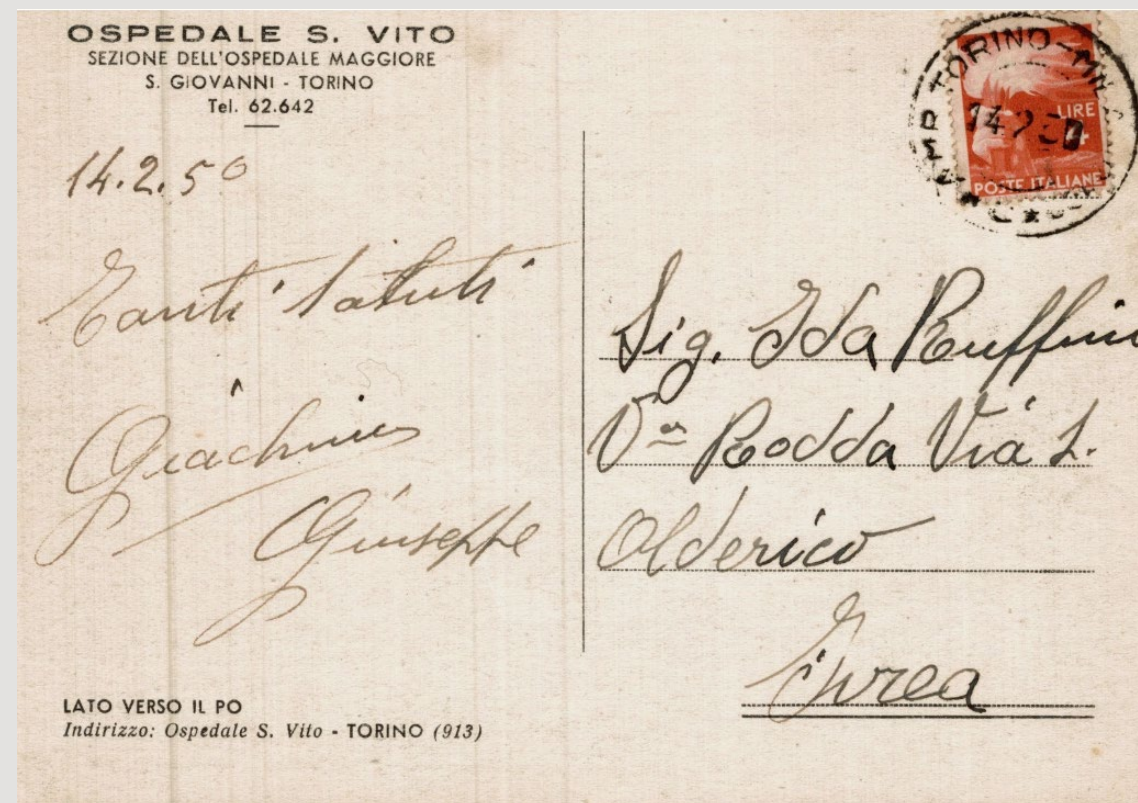 OSPEDALE S. VITO
SEZIONE DELL'OSPEDALE MAGGIORE
S. GIOVANNI - TORINO
Tel. 62.642
14.2.50
Tanti saluti
Giuseppe
LATO VERSO IL PO
Indirizzo: Ospedale S. Vito - TORINO (913)
TORINO-MIL
14 2 50
LIRE
4
POSTE ITALIANE
Sig. Ida Ruffini
Vᵃ Rodda Via S.
Olderico
Ivrea